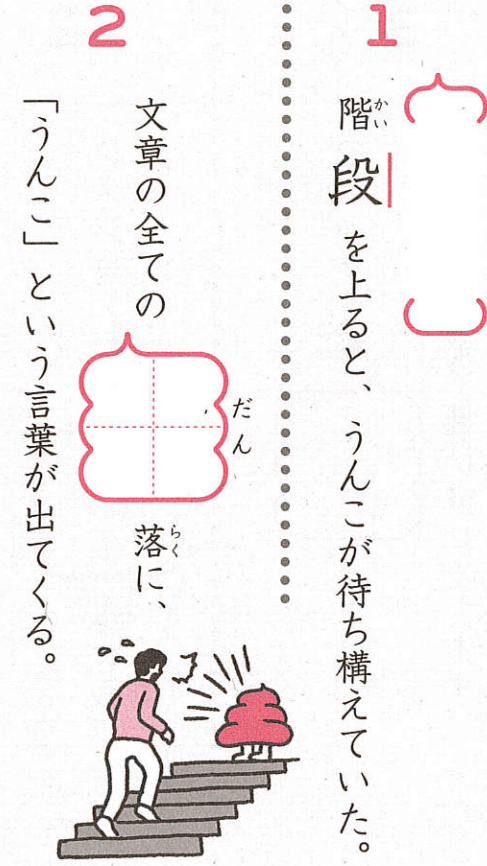 1
階段を上ると、うんこが待ち構えていた。
かい
2
文章の全ての 落に、
だん
らく
「うんこ」という言葉が出てくる。